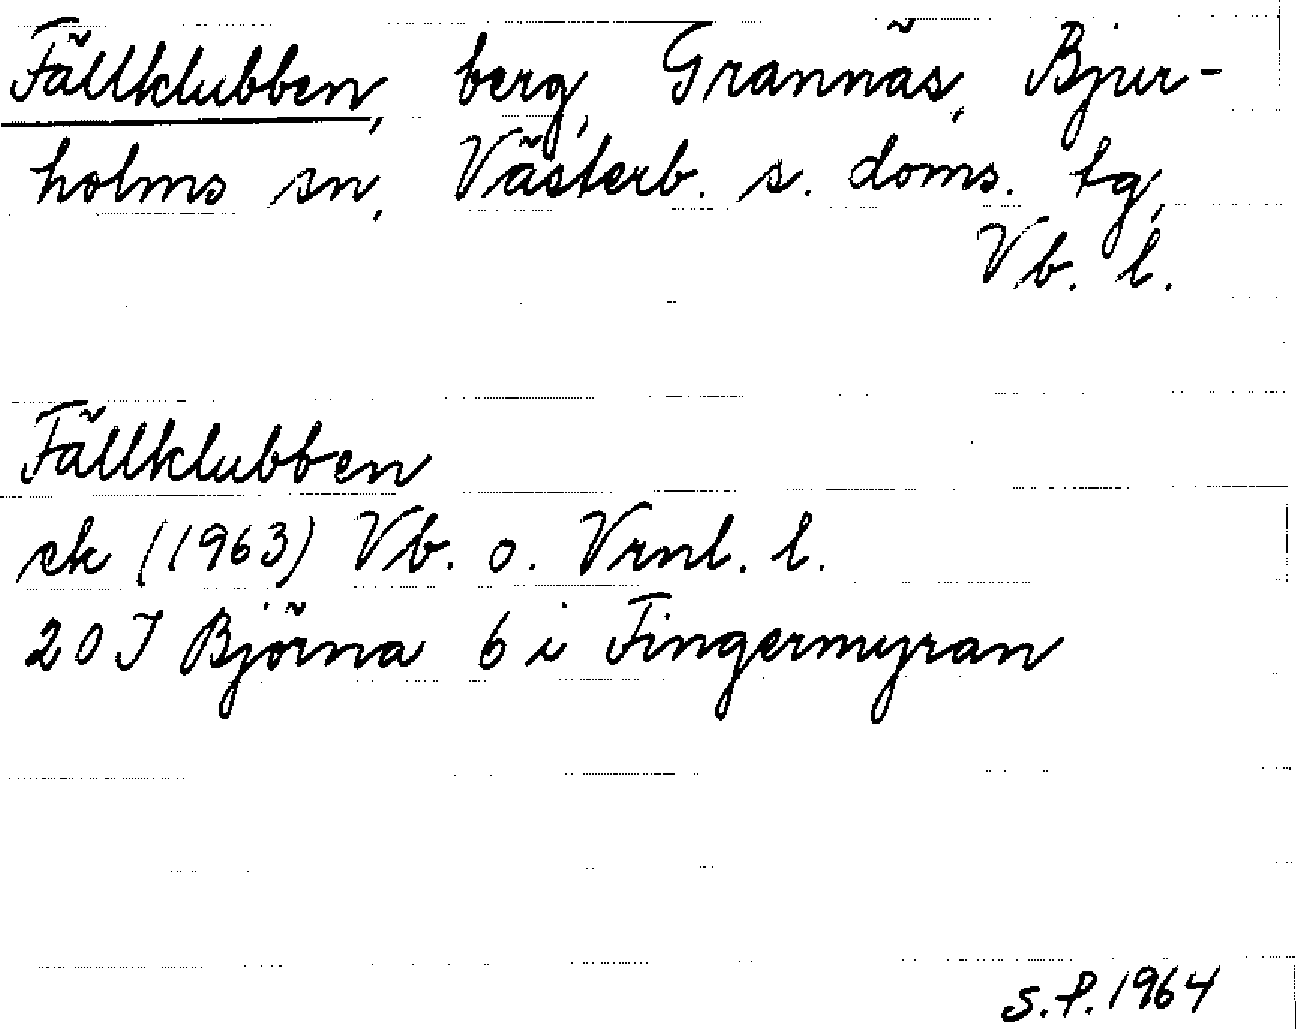 Fällklubben, berg, Grannäs, Bjur-
holms sn, Västerb. s. doms. tg,
Vb. l.
Fällklubben
ek (1963) Vb. o. Vrnl. l.
20 J Björna 6 i Fingermyran
S.P. 1964